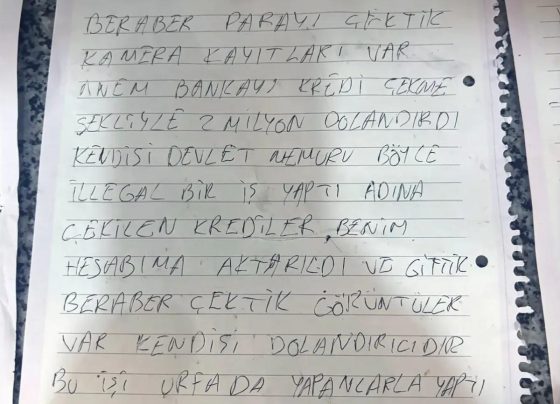 BERABER PARAYI ÇEKTİK
KAMERA KAYITLARI VAR
ANEM BANKAYI KREDİ ÇEKME
ŞEKLİYLE 2 MİLYON DOLANDIRDI
KENDİSİ DEVLET MEMURU BÖYLE
İLLEGAL BİR İŞ YAPTI ADINA
ÇEKİLEN KREDİLER BENİM
HESABIMA AKTARILDI VE GİTTİK
BERABER ÇEKTİK GÖRÜNTÜLER
VAR KENDİSİ DOLANDIRICIDIR
BU İŞİ URFADA YAPANLARLA YAPTI